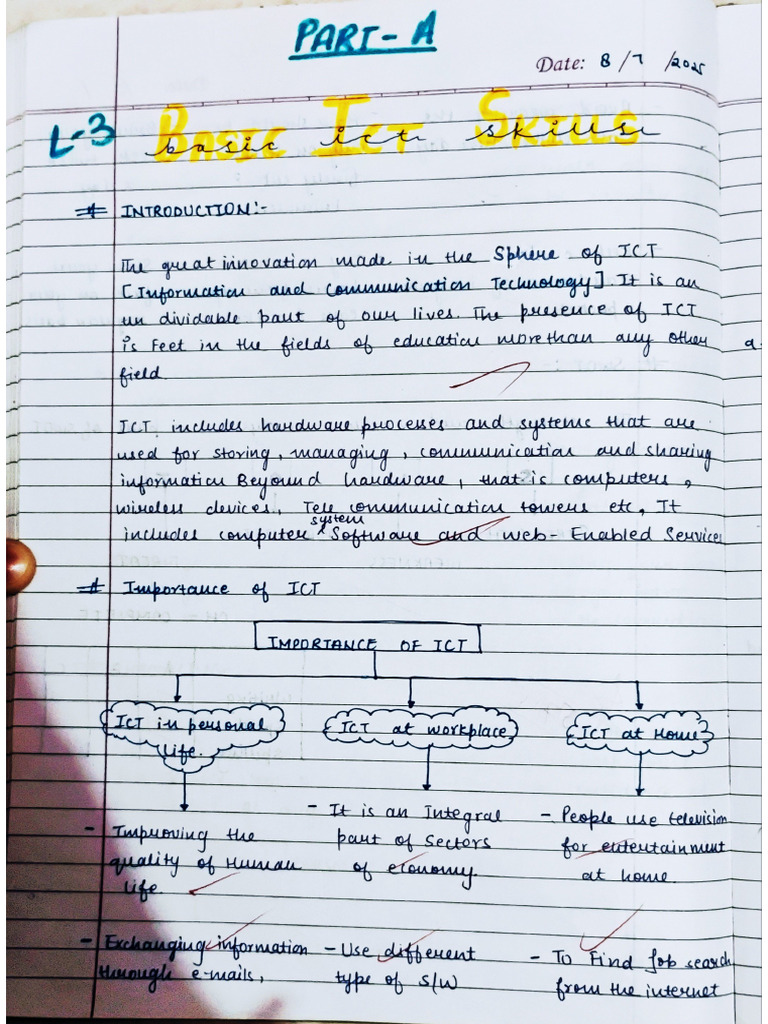 PART-A
Date: 8/7/2025
L-3 BASIC ICT SKILLS
basic ict skills
INTRODUCTION:-
The great innovation made in the Sphere of ICT
[Information and Communication Technology]. It is an
un dividable part of our lives. The presence of ICT
is Feet in the fields of education more than any other
field.
ICT includes hardware processes and systems that are
used for storing, managing, communication and sharing
information Beyound hardware, that is computers,
wireless devices, Tele communication towers etc, It
includes computer system Software and web-Enabled Services
# Importance of ICT
IMPORTANCE OF ICT
ICT in personal life.
ICT at workplace
ICT at Home
- Improving the
quality of Human
life.
- Exchanging information
through e-mails,
- It is an Integral
part of Sectors
of economy.
- Use different
type of S/W
- People use television
for entertainment
at home.
- To Find Job search
from the internet